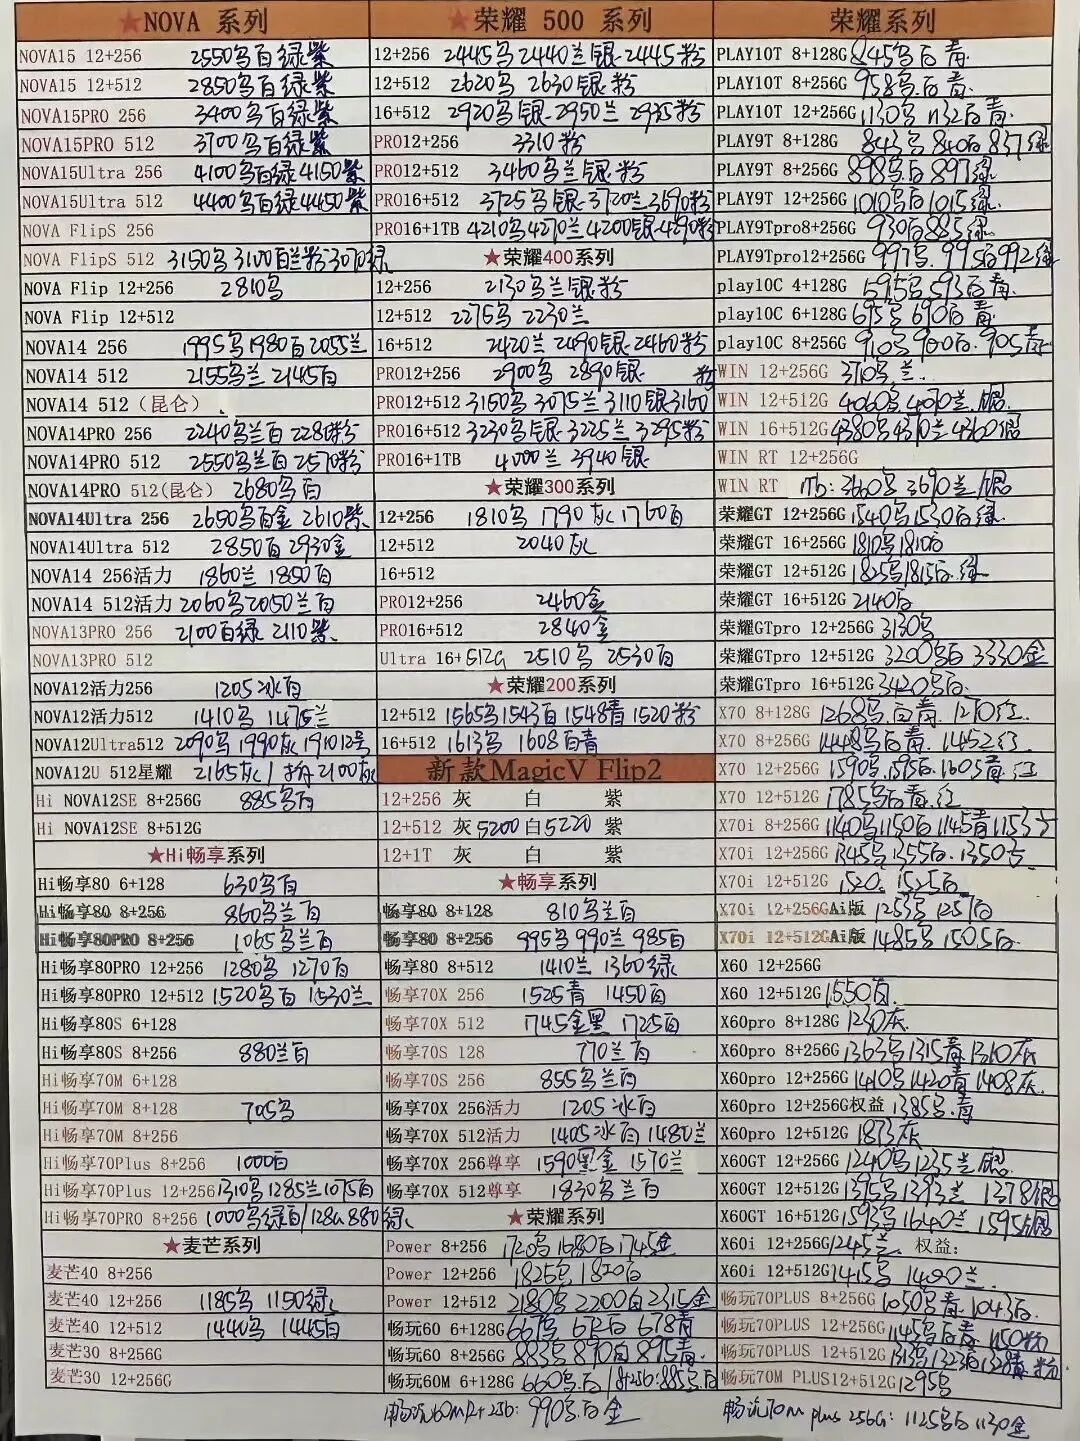 ★NOVA 系列
NOVA15 12+256 2550乌百绿紫
NOVA15 12+512 2850乌百绿紫
NOVA15PRO 256 3400乌百绿紫
NOVA15PRO 512 3700乌百绿紫
NOVA15Ultra 256 4100乌百绿4150紫
NOVA15Ultra 512 4400乌百绿4450紫
NOVA FlipS 256
NOVA FlipS 512 3150乌3100百兰粉3070绿
NOVA Flip 12+256 2810乌
NOVA Flip 12+512
NOVA14 256 1995乌1980百2055兰
NOVA14 512 2155乌兰2145百
NOVA14 512（昆仑）
NOVA14PRO 256 2240乌兰百 228粉
NOVA14PRO 512 2550乌兰百2570粉
NOVA14PRO 512(昆仑) 2680乌百
NOVA14Ultra 256 2650乌百金 2610紫
NOVA14Ultra 512 2850百2930金
NOVA14 256活力 1860兰 1850百
NOVA14 512活力 2060乌2050兰百
NOVA13PRO 256 2100百绿 2110紫
NOVA13PRO 512
NOVA12活力256 1205冰百
NOVA12活力512 1410乌 1475兰
NOVA12Ultra512 2090乌1990灰191012号
NOVA12U 512星耀 2165灰/ 2100灰
Hi NOVA12SE 8+256G 885乌百
Hi NOVA12SE 8+512G
★Hi畅享系列
Hi畅享80 6+128 630乌百
Hi畅享80 8+256 860乌兰百
Hi畅享80PRO 8+256 1065乌兰百
Hi畅享80PRO 12+256 1280乌 1270百
Hi畅享80PRO 12+512 1520乌百 1530兰
Hi畅享80S 6+128
Hi畅享80S 8+256 880兰百
Hi畅享70M 6+128
Hi畅享70M 8+128 705乌
Hi畅享70M 8+256
Hi畅享70Plus 8+256 1000百
Hi畅享70Plus 12+256 1310乌1285兰1075百
Hi畅享70PRO 8+256 1000乌绿百/128G 880绿
★麦芒系列
麦芒40 8+256
麦芒40 12+256 1185乌 1150绿
麦芒40 12+512 1440乌 1445百
麦芒30 8+256G
麦芒30 12+256G
★荣耀 500 系列
12+256 2445乌2440兰银 2445粉
12+512 2620乌 2630银粉
16+512 2920乌银 2950兰 2935粉
PRO12+256 3310粉
PRO12+512 3460乌兰银粉
PRO16+512 3725乌银 3720兰3690粉
PRO16+1TB 4210乌4270兰4200银4290粉
★荣耀400系列
12+256 2130乌兰银粉
12+512 2275乌 2230兰
16+512 2420兰 2490银 2460粉
PRO12+256 2900乌 2890银
PRO12+512 3150乌 3075兰3110银3160粉
PRO16+512 3230乌银 3225兰 3295粉
PRO16+1TB 4000兰 3940银
★荣耀300系列
12+256 1810乌 1790灰1760百
12+512 2040灰
16+512
PRO12+256 2460金
PRO16+512 2840金
Ultra 16+512G 2510乌 2530百
★荣耀200系列
12+512 1565乌1543百1548青1520粉
16+512 1613乌 1608百青
新款MagicV Flip2
12+256 灰 白 紫
12+512 灰5200白5220 紫
12+1T 灰 白 紫
★畅享系列
畅享80 8+128 810乌兰百
畅享80 8+256 995乌990兰985百
畅享80 8+512 1410兰 1360绿
畅享70X 256 1525青 1450百
畅享70X 512 1745金黑 1725百
畅享70S 128 770兰百
畅享70S 256 855乌兰百
畅享70X 256活力 1205冰百
畅享70X 512活力 1405冰百1480兰
畅享70X 256尊享 1590黑金 1570兰
畅享70X 512尊享 1830乌兰百
★荣耀系列
Power 8+256 1720乌1680百1745金
Power 12+256 1825乌 1820百
Power 12+512 2180乌 2200百2315金
畅玩60 6+128G 667乌 672百 678青
畅玩60 8+256G 883乌890百895青
畅玩60M 6+128G 660乌百 /8+256:885乌百
畅玩60m12+256: 990乌百金
荣耀系列
PLAY10T 8+128G 845乌百青
PLAY10T 8+256G 958乌百青
PLAY10T 12+256G 1130乌1132百青
PLAY9T 8+128G 843乌840百837绿
PLAY9T 8+256G 898乌百 897绿
PLAY9T 12+256G 1010乌百1015绿
PLAY9Tpro8+256G 930百885绿
PLAY9Tpro12+256G 997乌995百992绿
play10C 4+128G 595乌593百青
play10C 6+128G 695乌690百青
play10C 8+256G 910乌900百905青
WIN 12+256G 3710乌兰
WIN 12+512G 4060乌4090兰银
WIN 16+512G 4380乌4310兰4360银
WIN RT 12+256G
WIN RT 1Tb:3660乌3690兰银
荣耀GT 12+256G 1540乌1530百绿
荣耀GT 16+256G 1810乌1810百
荣耀GT 12+512G 1825乌1815百绿
荣耀GT 16+512G 2140百
荣耀GTpro 12+256G 3130乌
荣耀GTpro 12+512G 3200乌百 3330金
荣耀GTpro 16+512G 3420乌百
X70 8+128G 1268乌百青 1270红
X70 8+256G 1448乌百青 1452红
X70 12+256G 1590乌1595百1605青红
X70 12+512G 1785乌百青红
X70i 8+256G 1140乌1150百1145青1153
X70i 12+256G 1345乌1355百1350
X70i 12+512G 1520 1525百
X70i 12+256GAi版 1253乌1257百
X70i 12+512GAi版 1485乌1505百
X60 12+256G
X60 12+512G 1550百
X60pro 8+128G 1230灰
X60pro 8+256G 1363乌1315青1310灰
X60pro 12+256G 1410乌1420青1408灰
X60pro 12+256G权益 1385乌青
X60pro 12+512G 1873灰
X60GT 12+256G 1240乌1235兰银
X60GT 12+512G 1395乌1393兰 1378银
X60GT 16+512G 1593乌1640兰 1595银
X60i 12+256G 1245兰 权益：
X60i 12+512G 1415乌 1400兰
畅玩70PLUS 8+256G 1050乌青1043百
畅玩70PLUS 12+256G 1145乌百青1150粉
畅玩70PLUS 12+512G 1313乌1323百1328青粉
畅玩70M PLUS12+512G 1295乌
畅玩70m plus 256G: 1125乌百1130金